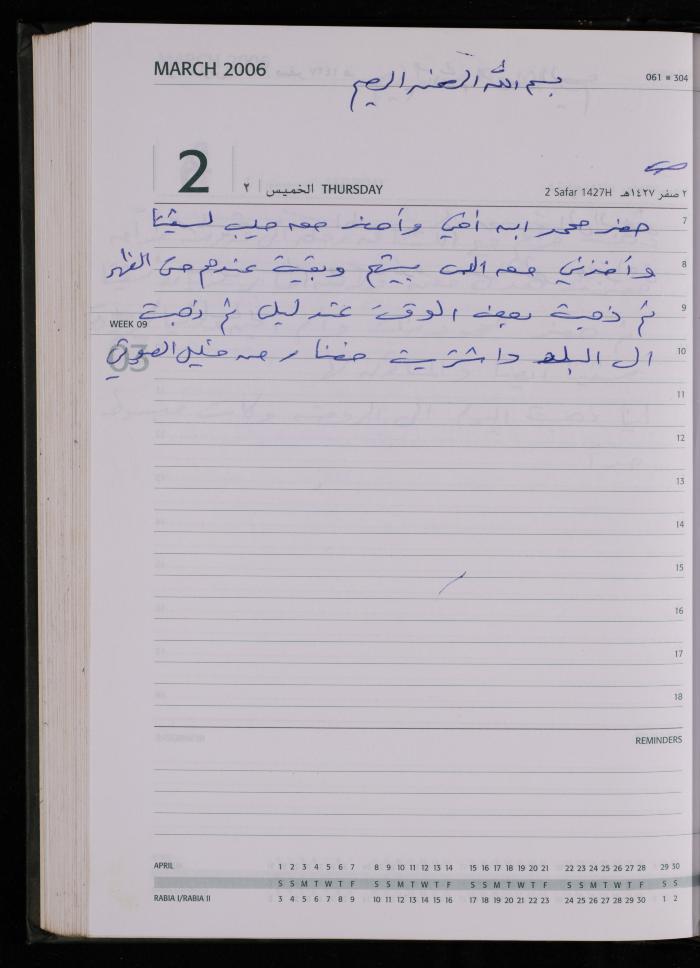 MARCH 2006
بسم الله الرحمن الرحيم
061 ▪ 304
2
٢ الخميس THURSDAY
2 Safar 1427H ٢ صفر ١٤٢٧هـ
7
حضر محمد ابن أخي وأحضر معه حليب لسقينا
8
وأخذني معه الى بيتهم وبقيت عندهم حتى الظهر
9
ثم ذهبت بعض الوقت عند ليل ثم ذهبت
WEEK 09
10
الى البلد واشتريت خضار من خليل الصوتي
03
11
12
13
14
15
16
17
18
REMINDERS
APRIL 1 2 3 4 5 6 7 8 9 10 11 12 13 14 15 16 17 18 19 20 21 22 23 24 25 26 27 28 29 30
S S M T W T F S S M T W T F S S M T W T F S S M T W T F S S
RABIA I/RABIA II 3 4 5 6 7 8 9 10 11 12 13 14 15 16 17 18 19 20 21 22 23 24 25 26 27 28 29 30 1 2